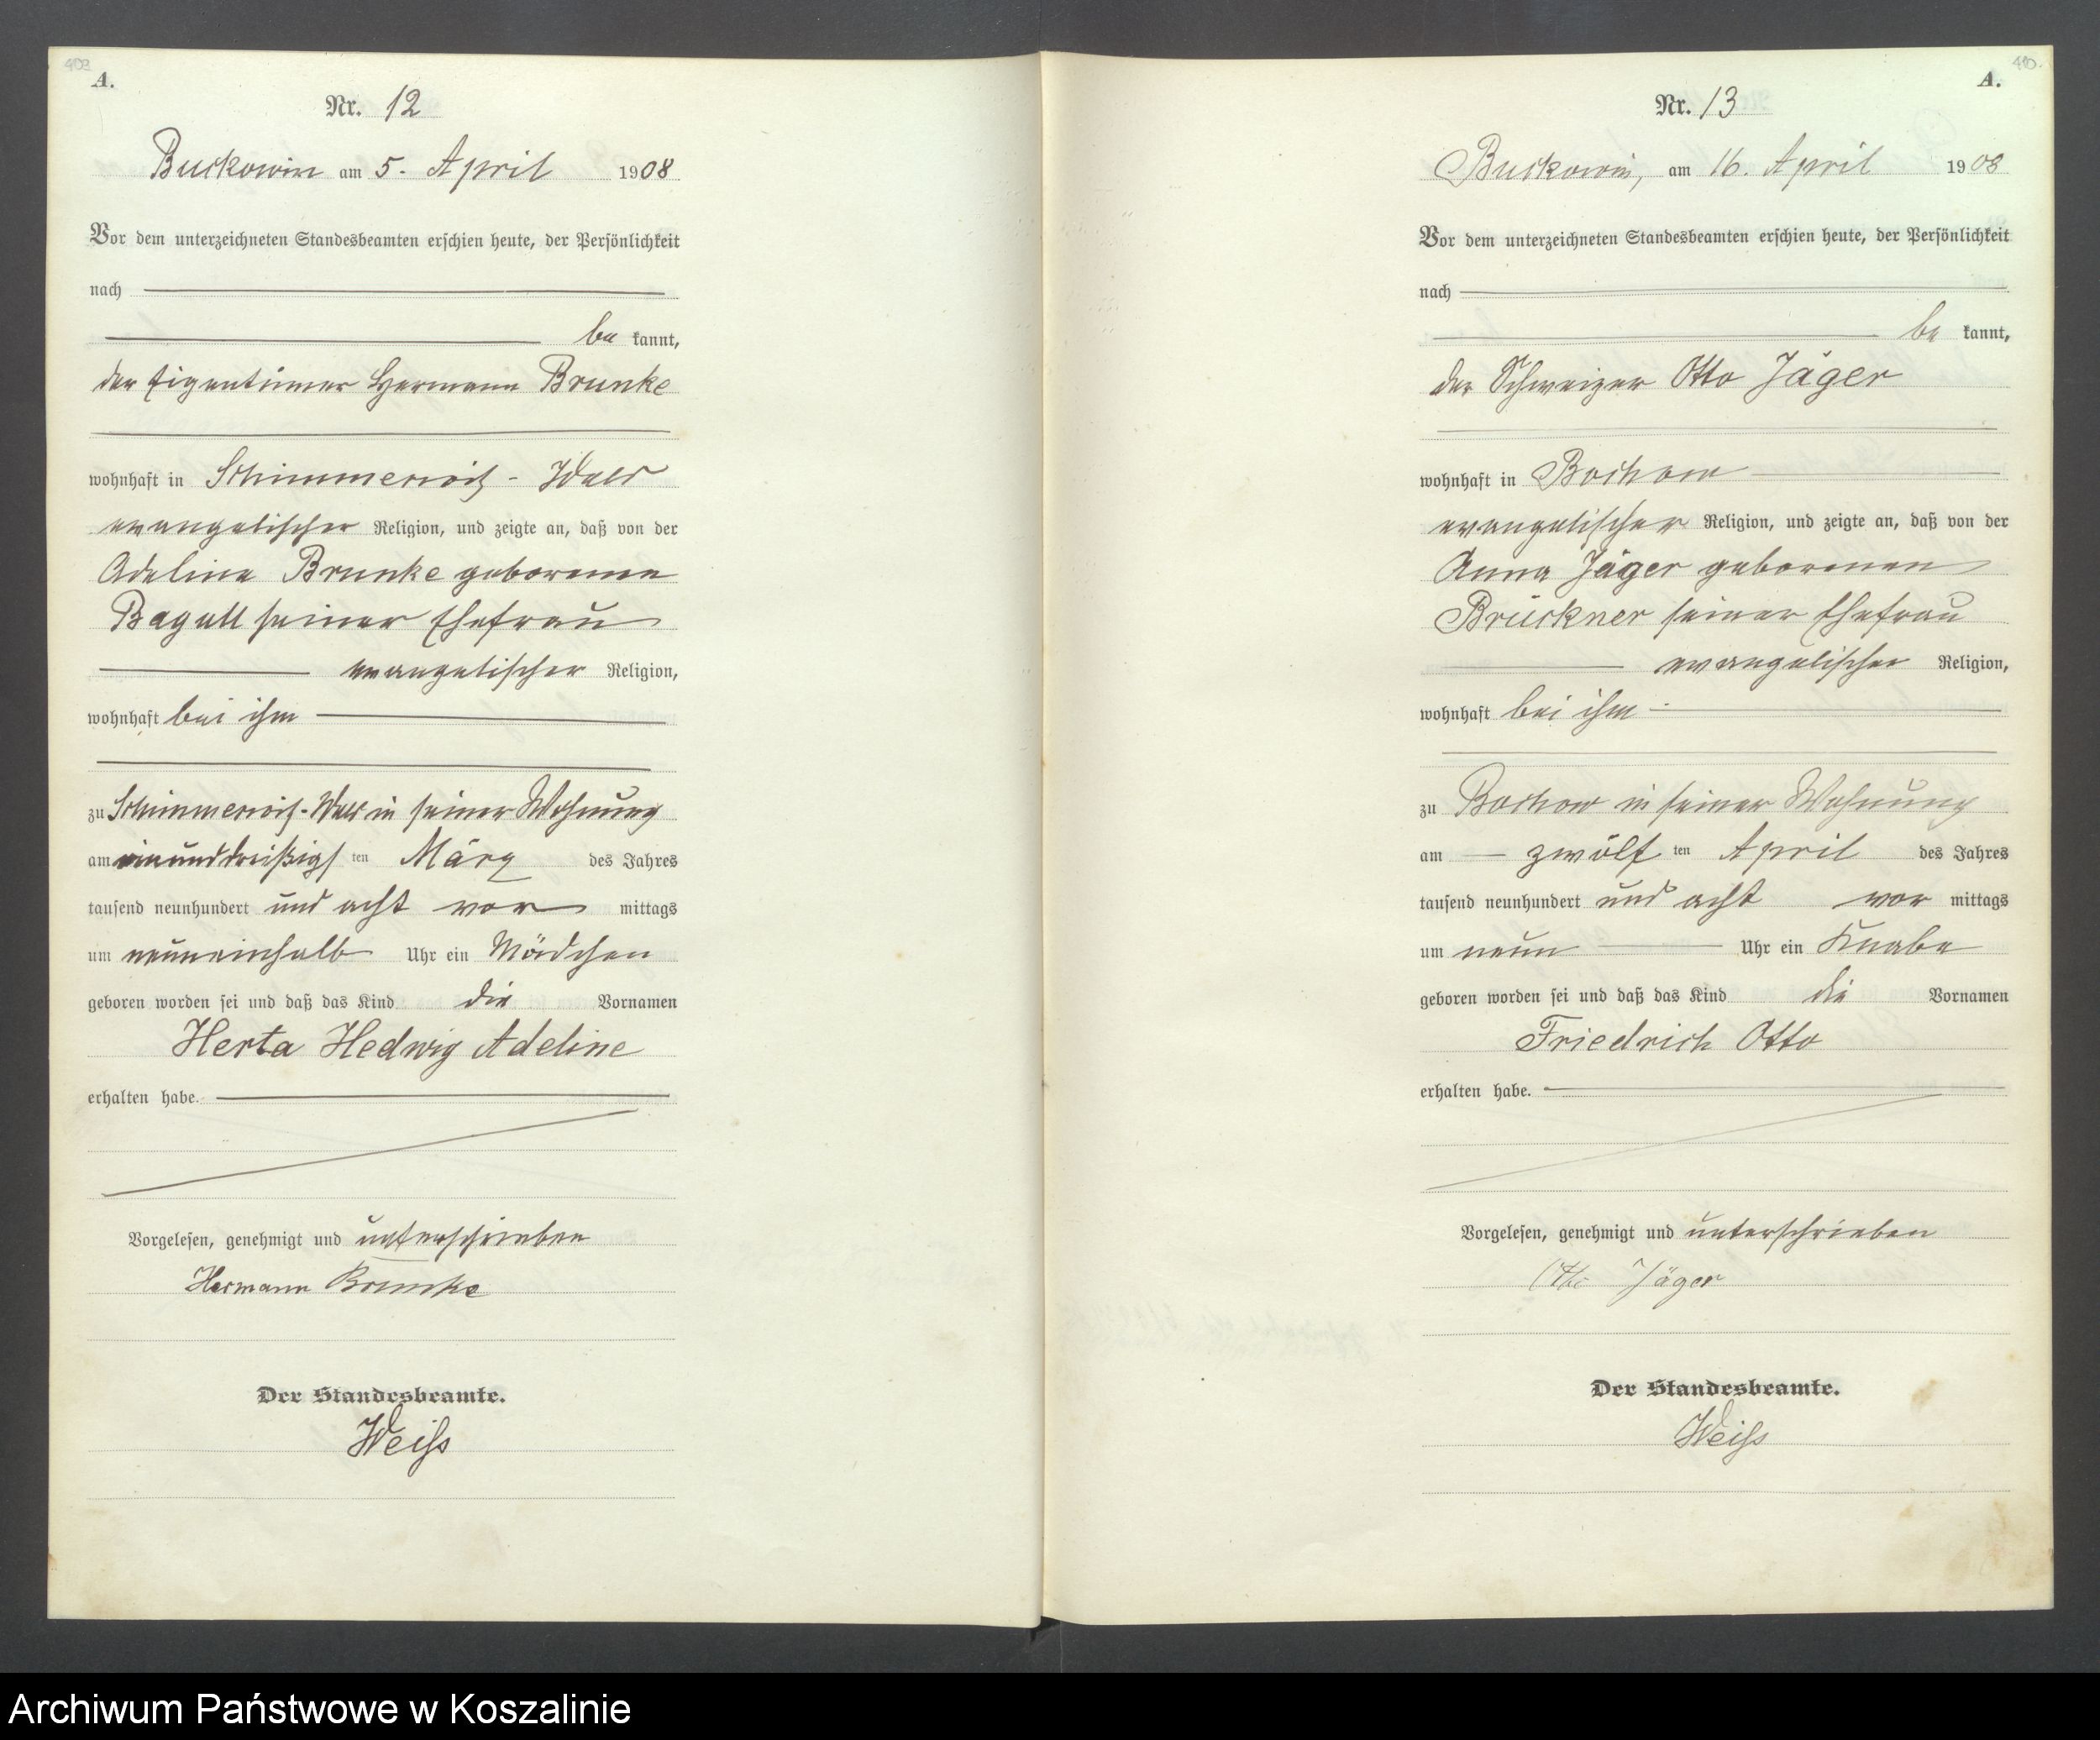 403
A.
Nr. 12
Buckowin am 5. April 1908
Vor dem unterzeichneten Standesbeamten erschien heute, der Persönlichkeit
nach
be kannt,
der Eigentümer Hermann Brunke
wohnhaft in Schimmerwitz - Wald
evangelischer Religion, und zeigte an, daß von der
Adeline Brunke geborenen
Bagull seiner Ehefrau
evangelischer Religion,
wohnhaft bei ihm
zu Schimmerwitz-Wald in seiner Wohnung
am einunddreißigs ten März des Jahres
tausend neunhundert und acht vor mittags
um neuneinhalb Uhr ein Mädchen
geboren worden sei und daß das Kind die Vornamen
Herta Hedwig Adeline
erhalten habe.
Vorgelesen, genehmigt und unterschrieben
Hermann Brunke
Der Standesbeamte.
Weiß
410.
A.
Nr. 13
Buckowin, am 16. April 1908
Vor dem unterzeichneten Standesbeamten erschien heute, der Persönlichkeit
nach
be kannt,
der Schweizer Otto Jäger
wohnhaft in Bochow
evangelischer Religion, und zeigte an, daß von der
Anna Jäger geborenen
Brückner seiner Ehefrau
evangelischer Religion,
wohnhaft bei ihm
zu Bochow in seiner Wohnung
am zwölf ten April des Jahres
tausend neunhundert und acht vor mittags
um neun Uhr ein Knabe
geboren worden sei und daß das Kind die Vornamen
Friedrich Otto
erhalten habe.
Vorgelesen, genehmigt und unterschrieben
Otto Jäger
Der Standesbeamte.
Weiß
Archiwum Państwowe w Koszalinie